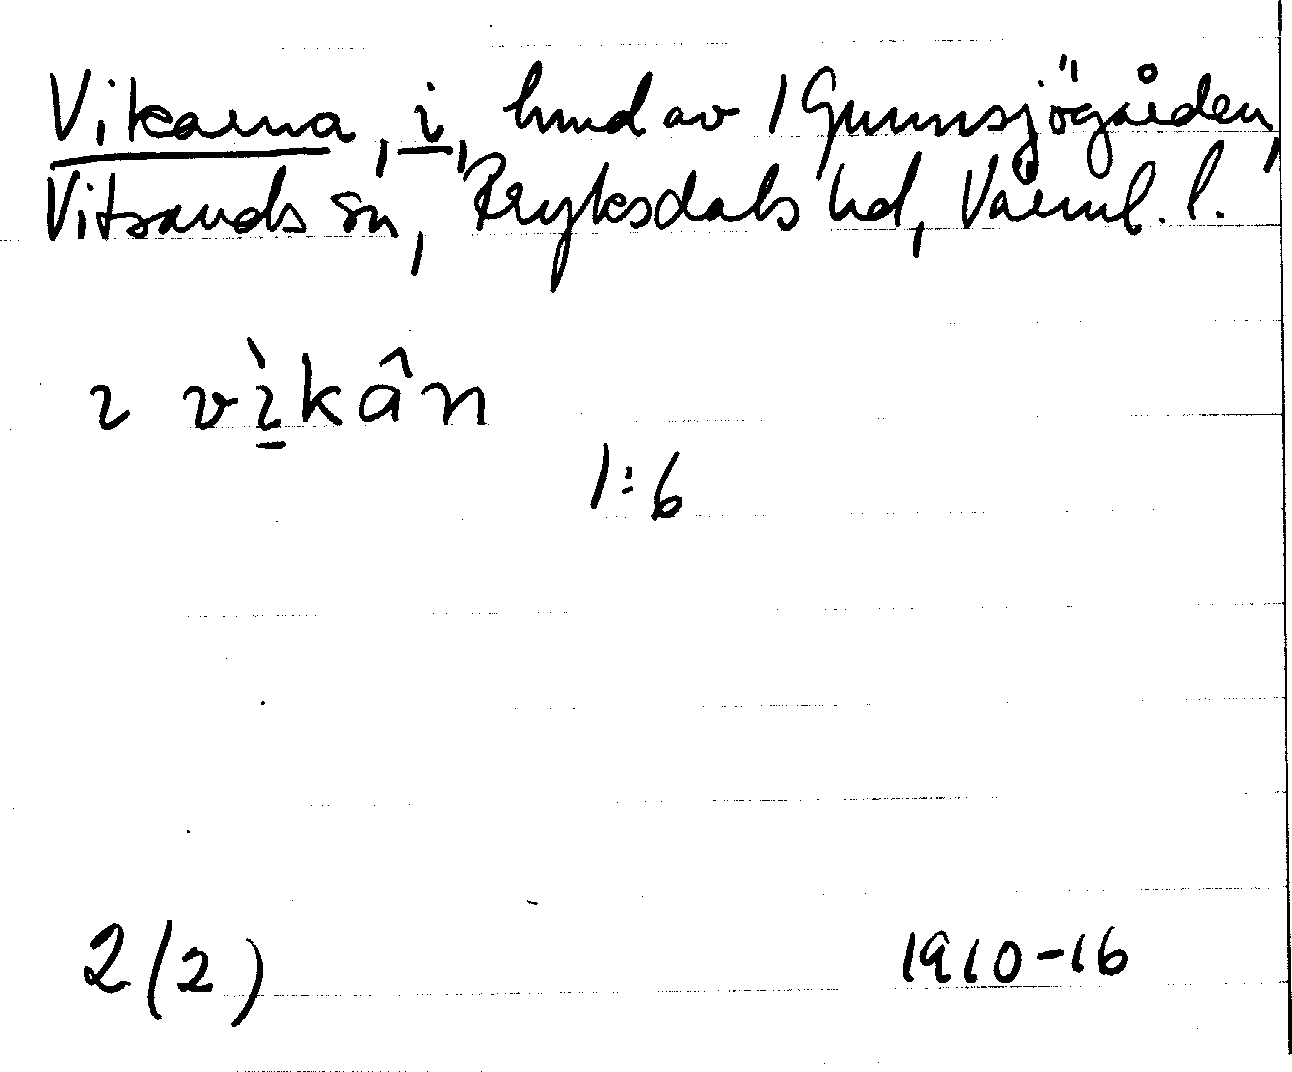 Vikarna, i, hmd av 1 Gunnsjögården,
Vitsands sn, Fryksdals hd, Värml. l.
ı vı̱̀kân
1:6
2(2) 1910-16